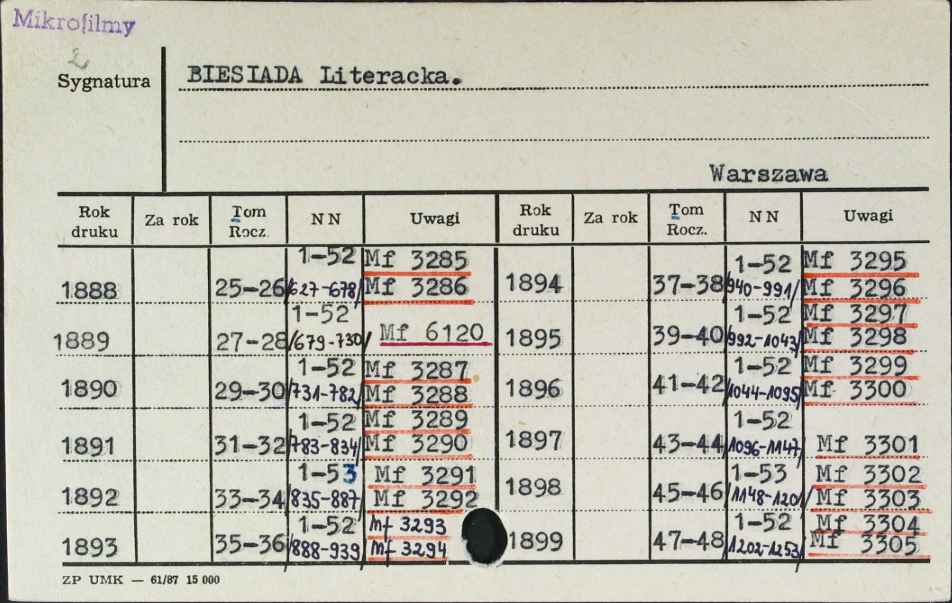 Mikrofilmy
2
Sygnatura BIESIADA Literacka.
Warszawa
Rok druku Za rok Tom Rocz. NN Uwagi Rok druku Za rok Tom Rocz. NN Uwagi
1-52 Mf 3285 1-52 Mf 3295
1888 25-26 /627-678/ Mf 3286 1894 37-38 /940-991/ Mf 3296
1-52 1-52 Mf 3297
1889 27-28 /679-730/ Mf 6120 1895 39-40 /992-1043/ Mf 3298
1-52 Mf 3287 1-52 Mf 3299
1890 29-30 /731-782/ Mf 3288 1896 41-42 /1044-1095/ Mf 3300
1-52 Mf 3289 1-52
1891 31-32 /783-834/ Mf 3290 1897 43-44 /1096-1147/ Mf 3301
1-53 Mf 3291 1-53 Mf 3302
1892 33-34 /835-887/ Mf 3292 1898 45-46 /1148-1201/ Mf 3303
1-52 Mf 3293 1-52 Mf 3304
1893 35-36 /888-939/ Mf 3294 1899 47-48 /1202-1253/ Mf 3305
ZP UMK — 61/87 15 000